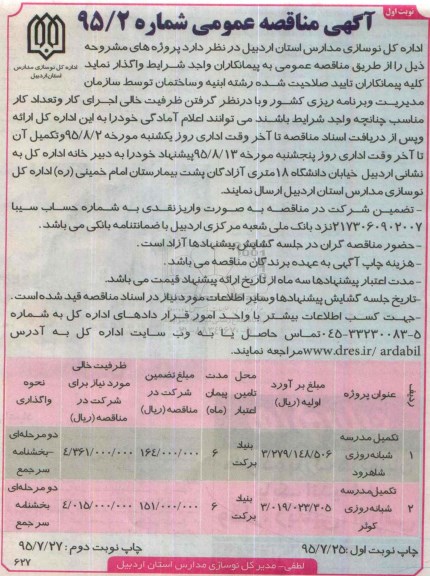 نوبت اول
آگهی مناقصه عمومی شماره ۹۵/۲
اداره کل نوسازی مدارس
استان اردبیل
اداره کل نوسازی مدارس استان اردبیل در نظر دارد پروژه های مشروحه
ذیل را از طریق مناقصه عمومی به پیمانکاران واجد شرایط واگذار نماید
کلیه پیمانکاران تایید صلاحیت شده رشته ابنیه و ساختمان توسط سازمان
مدیریت وبرنامه ریزی کشور وبا درنظر گرفتن ظرفیت خالی اجرای کار وتعداد کار
مناسب چنانچه واجد شرایط باشند می توانند اعلام آمادگی خودرا به این اداره کل ارائه
وپس از دریافت اسناد مناقصه تا آخر وقت اداری روز یکشنبه مورخه ۹۵/۸/۲ وتکمیل آن
تا آخر وقت اداری روز پنجشنبه مورخه ۹۵/۸/۱۳ پیشنهاد خودرا به دبیر خانه اداره کل به
نشانی اردبیل خیابان دانشگاه ۱۸متری آزادگان پشت بیمارستان امام خمینی (ره) اداره کل
نوسازی مدارس استان اردبیل ارسال نمایند.
- تضمین شرکت در مناقصه به صورت واریز نقدی به شماره حساب سیبا
۲۱۷۳۰۶۰۹۰۲۰۰۷ نزد بانک ملی شعبه مرکزی اردبیل با ضمانتنامه بانکی می باشد.
- حضور مناقصه گران در جلسه گشایش پیشنهادها آزاد است.
- هزینه چاپ آگهی به عهده برندگان مناقصه می باشد.
- مدت اعتبار پیشنهادها سه ماه از تاریخ ارائه پیشنهاد قیمت می باشد.
- تاریخ جلسه گشایش پیشنهادها و سایر اطلاعات مورد نیاز در اسناد مناقصه قید شده است.
- جهت کسب اطلاعات بیشتر با واحد امور قرار دادهای اداره کل به شماره
۵-۳۳۲۳۰۰۸۳-۰۴۵ تماس حاصل یا به وب سایت اداره کل به آدرس
www.dres.ir/ ardabil مراجعه نمایند.
ردیف | عنوان پروژه | مبلغ برآورد اولیه (ریال) | محل تامین اعتبار | مدت پیمان (ماه) | مبلغ تضمین شرکت در مناقصه (ریال) | ظرفیت خالی مورد نیاز برای شرکت در مناقصه (ریال) | نحوه واگذاری
۱ | تکمیل مدرسه شبانه روزی شاهرود | ۳/۲۷۹/۱۴۸/۵۰۶ | بنیاد برکت | ۶ | ۱۶۴/۰۰۰/۰۰۰ | ۴/۳۶۱/۰۰۰/۰۰۰ | دو مرحله ای -بخشنامه سرجمع
۲ | تکمیل مدرسه شبانه روزی کوثر | ۳/۰۱۹/۰۲۳/۳۰۵ | بنیاد برکت | ۶ | ۱۵۱/۰۰۰/۰۰۰ | ۴/۰۱۵/۰۰۰/۰۰۰ | دو مرحله ای بخشنامه سر جمع
چاپ نوبت اول :۹۵/۷/۲۵
چاپ نوبت دوم : ۹۵/۷/۲۷
لطفی- مدیر کل نوسازی مدارس استان اردبیل
۶۲۷